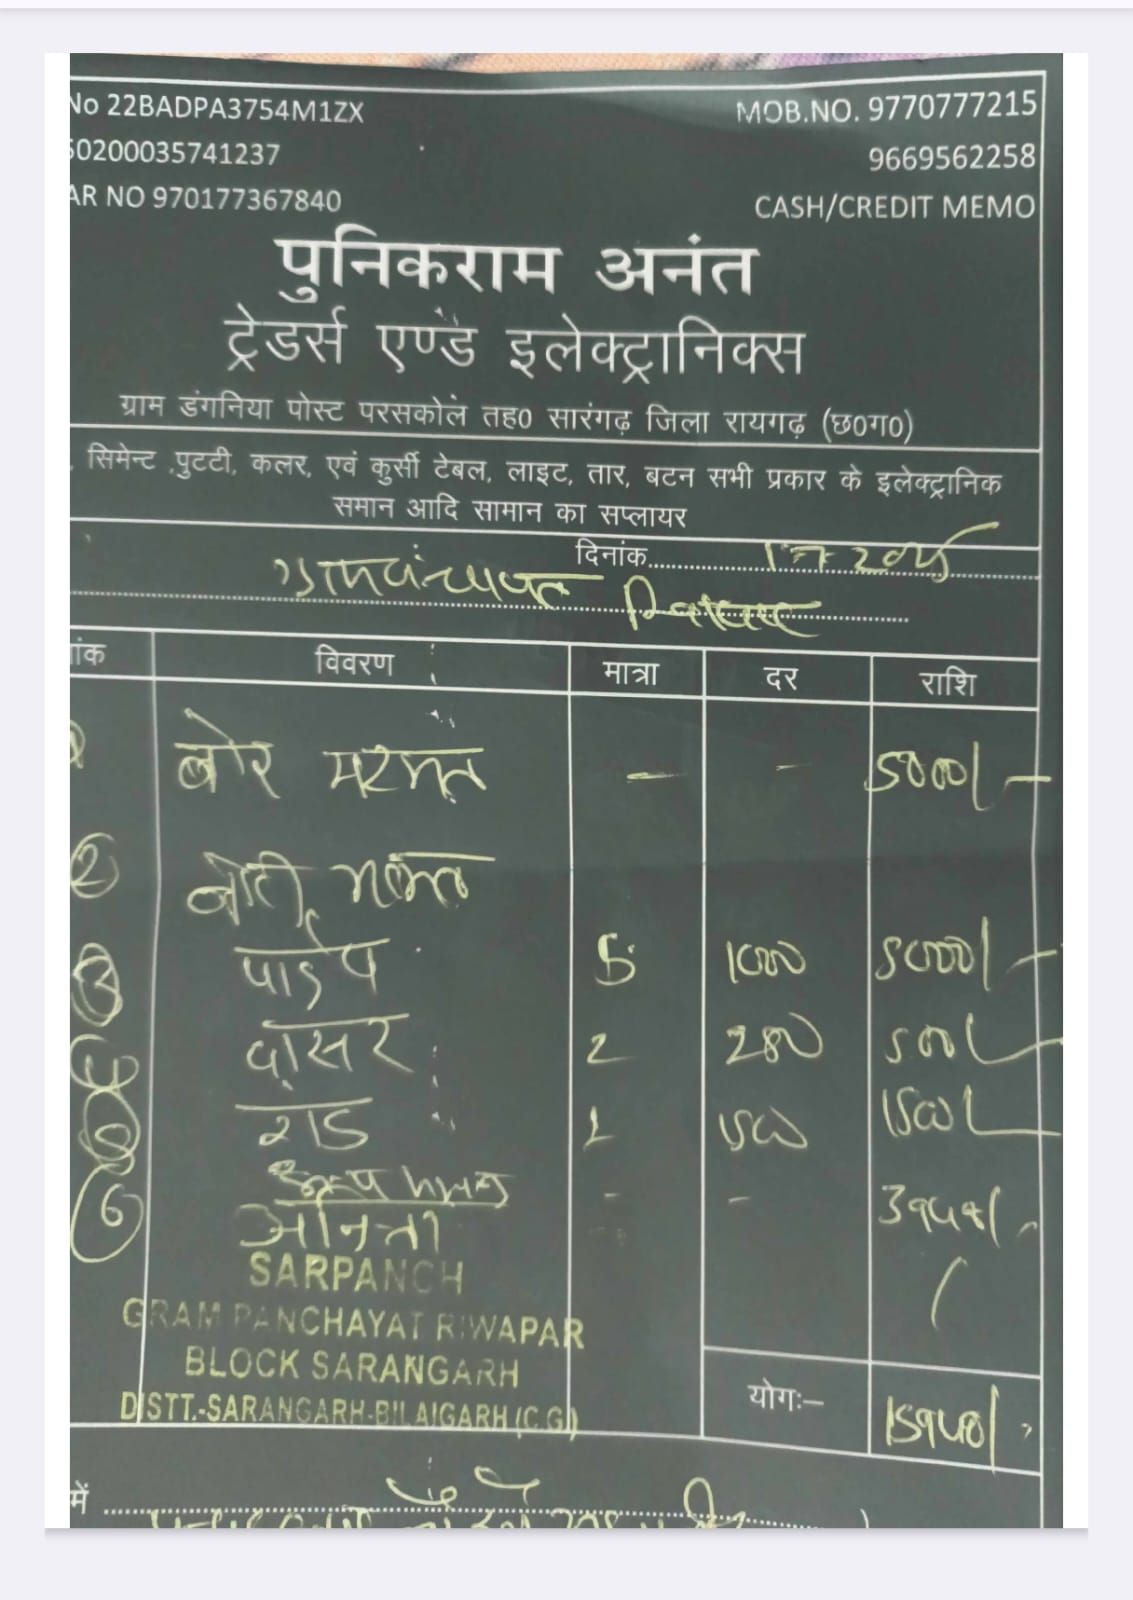 No 22BADPA3754M1ZX
MOB.NO. 9770777215
50200035741237
9669562258
AR NO 970177367840
CASH/CREDIT MEMO
पुनिकराम अनंत
ट्रेडर्स एण्ड इलेक्ट्रानिक्स
ग्राम डंगनिया पोस्ट परसकोलं तह0 सारंगढ़ जिला रायगढ़ (छ0ग0)
, सिमेन्ट ,पुटटी, कलर, एवं कुर्सी टेबल, लाइट, तार, बटन सभी प्रकार के इलेक्ट्रानिक
समान आदि सामान का सप्लायर
दिनांक
ग्रामपंचायत
ांक विवरण मात्रा दर राशि
बोर मरम्मत - - 5000/-
2
3 पाईप 5 1000 5000/-
4 वासर 2 280 500/-
5 राड 1 1500 1500/-
6 - -
अनिता
SARPANCH
GRAM PANCHAYAT RIWAPAR
BLOCK SARANGARH
DISTT.-SARANGARH-BILAIGARH (C.G.)
योगः–
में